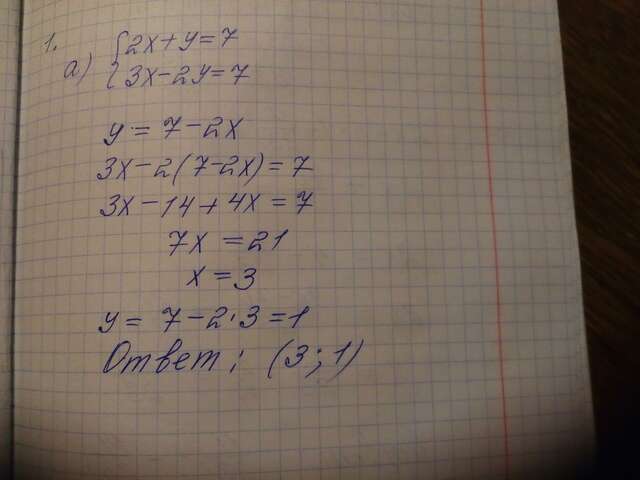 1.
а) { 2x + y = 7
3x - 2y = 7
y = 7 - 2x
3x - 2(7 - 2x) = 7
3x - 14 + 4x = 7
7x = 21
x = 3
y = 7 - 2·3 = 1
Ответ: (3; 1)